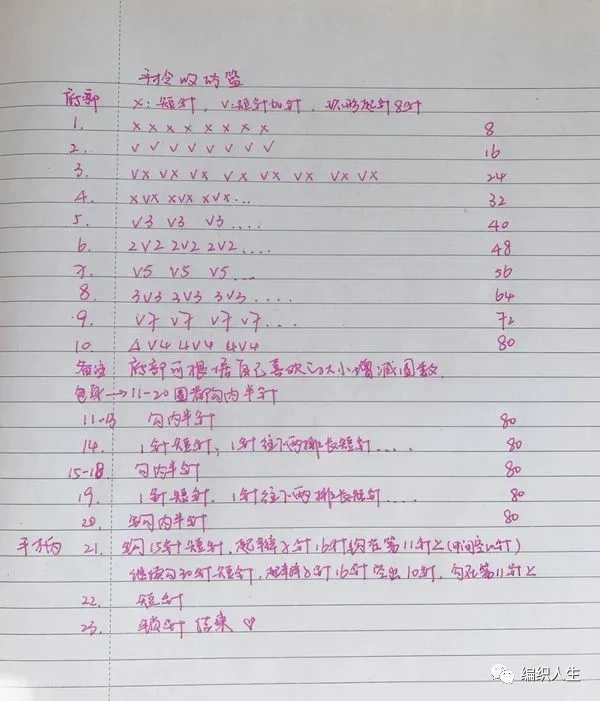 手拎收纳篮
底部 x: 短针, v: 短针加针, 环形起针8针
1. x x x x x x x x 8
2. v v v v v v v v 16
3. vx vx vx vx vx vx vx vx 24
4. xvx xvx xvx... 32
5. v3 v3 v3.... 40
6. 2v2 2v2 2v2.... 48
7. v5 v5 v5... 56
8. 3v3 3v3 3v3.... 64
9. v7 v7 v7 v7.... 72
10. 4v4 4v4 4v4 80
备注 底部可根据自己喜欢的大小增减圈数.
包身→11-20圈都勾内半针
11-13 勾内半针 80
14. 1针短针, 1针往下两排长短针.... 80
15-18 勾内半针 80
19. 1针短针, 1针往下两排长短针.... 80
20. 勾内半针 80
21. 勾15针短针, 起辫子针16针 勾在第11针上(中间空10针)
继续勾30针短针, 起辫子针16针 空出10针, 勾在第11针上
22. 短针
23. 锁针 结束 ♡
编织人生